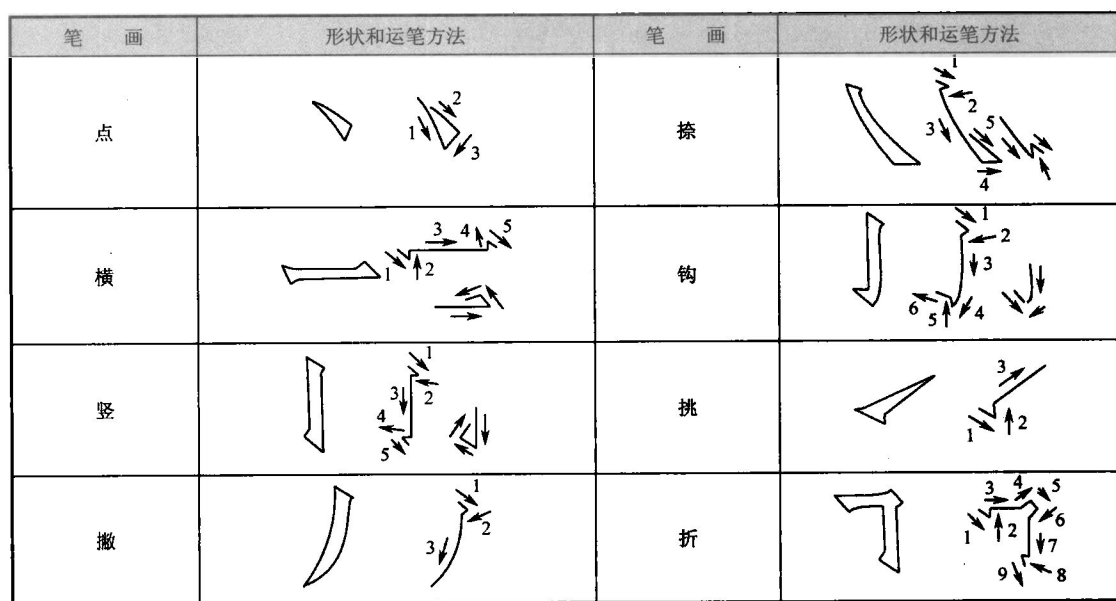 笔 画 形状和运笔方法 笔 画 形状和运笔方法
点 1 2 3 捺 1 2 3 4 5
横 1 2 3 4 5 钩 1 2 3 4 5 6
竖 1 2 3 4 5 挑 1 2 3
撇 1 2 3 折 1 2 3 4 5 6 7 8 9